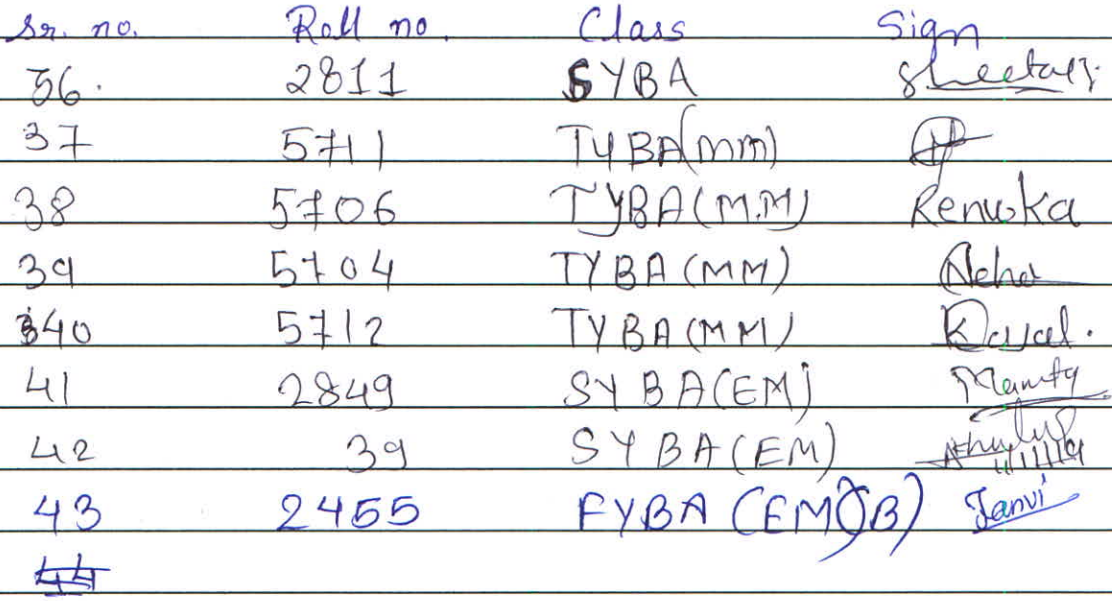 Sr. no. Roll no. Class Sign
36. 2811 SYBA Sheetal
37 5711 TYBA(MM)
38 5706 TYBA(M.M) Renuka
39 5704 TYBA(MM) Neha
40 5712 TYBA(MM) Kajal.
41 2849 SYBA(EM) Mamta
42 39 SYBA(EM)
43 2455 FYBA (EM)(B) Janvi
44